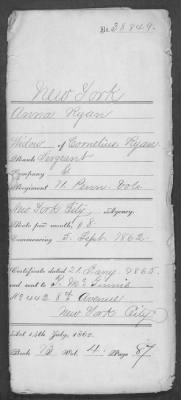 No 38849.
New York
Anna Ryan
Widow of Cornelius Ryan
Rank Sergeant
Company C
Regiment 71. Penn. Vols
New York City Agency.
Rate per month, $8
Commencing 3. Sept. 1862
Certificate dated 21. Jany. 1865.
and sent to P. McGinnis
No 442 8th Avenue
New York City
Act 14th July, 1862.
Book B Vol. 4 Page 87